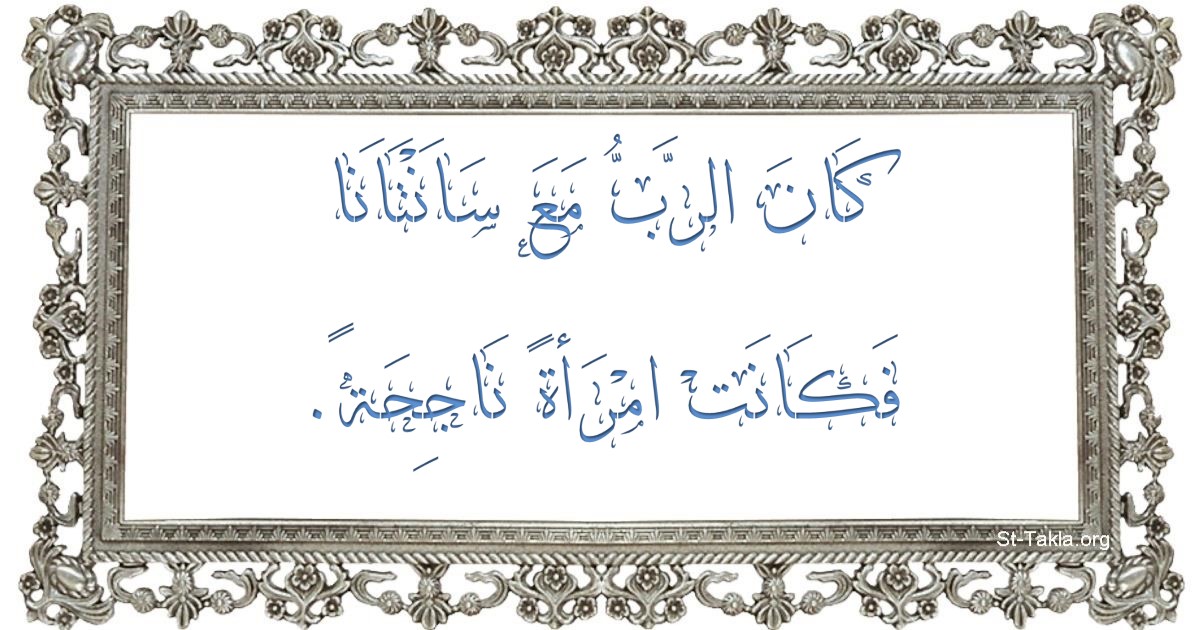 كَانَ الرَّبُّ مَعَ سَانْتَانَا
فَكَانَتْ امْرَأَةً نَاجِحَةً.
St-Takla.org